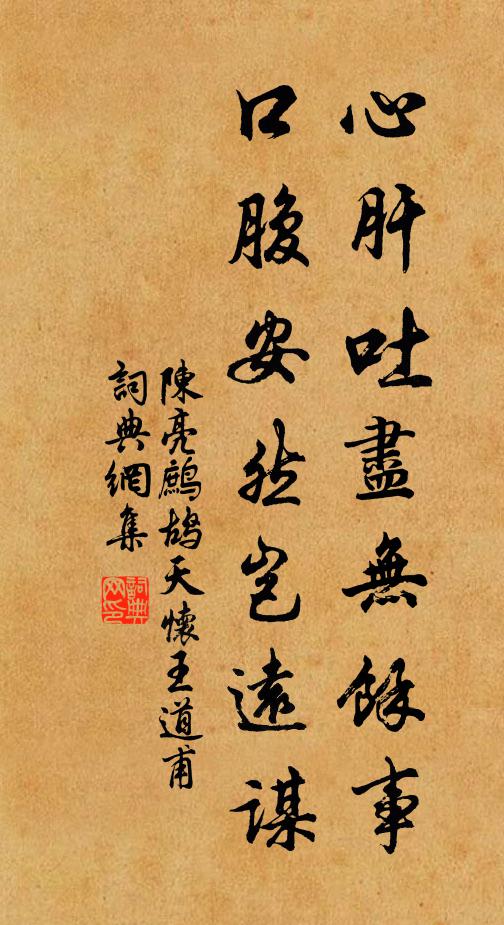 心肝吐盡無餘事
口腹安然豈遠謀
陳亮鷓鴣天懷王道甫
詞典網集
詞典網印